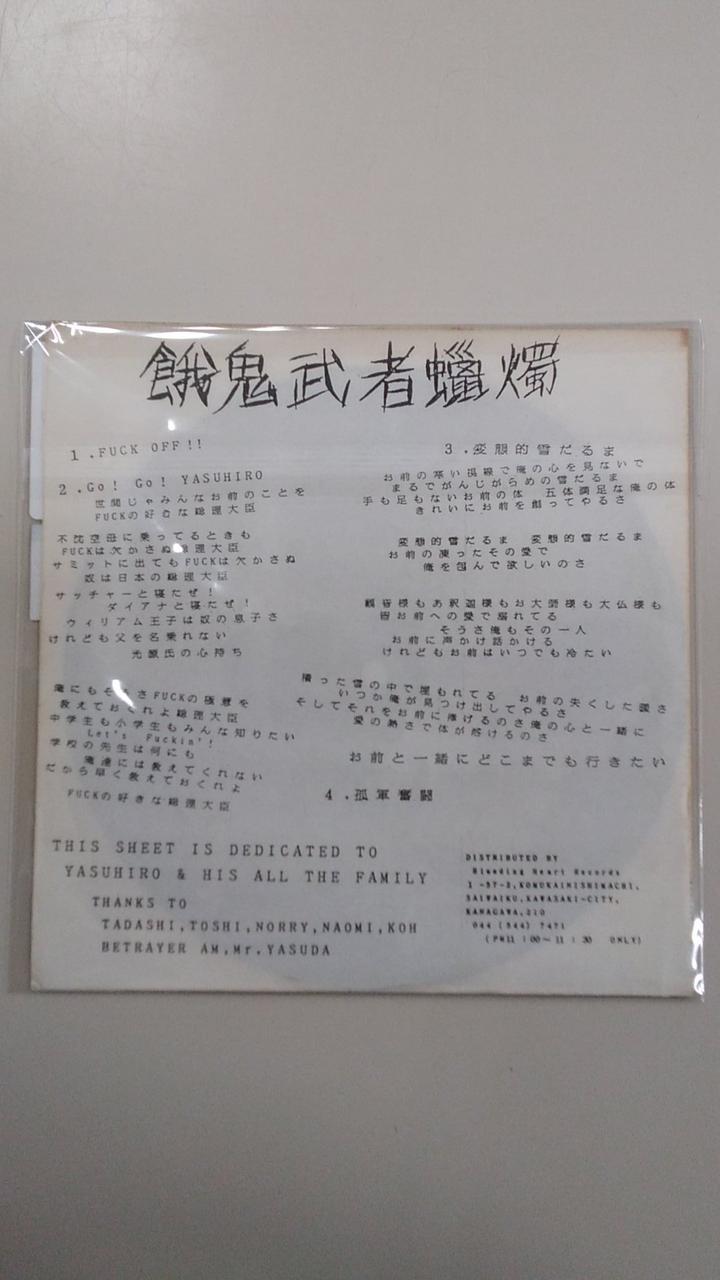 餓鬼武者蠟燭
1.FUCK OFF!!
2.Go! Go! YASUHIRO
世間じゃみんなお前のことを
FUCKの好きな総理大臣
不沈空母に乗ってるときも
FUCKは欠かさぬ総理大臣
サミットに出てもFUCKは欠かさぬ
奴は日本の総理大臣
サッチャーと寝たぜ!
ダイアナと寝たぜ!
ウィリアム王子は奴の息子さ
けれども父を名乗れない
光源氏の心持ち
俺にもそっとさFUCKの極意を
教えておくれよ総理大臣
中学生も小学生もみんな知りたい
Let's Fuckin'!
学校の先生は何にも
俺達には教えてくれない
だから早く教えておくれよ
FUCKの好きな総理大臣
3.変態的雪だるま
お前の寒い視線で俺の心を見ないで
まるでがんじがらめの雪だるま
手も足もないお前の体 五体満足な俺の体
きれいにお前を創ってやるさ
変態的雪だるま 変態的雪だるま
お前の凍ったその愛で
俺を包んで欲しいのさ
観音様もお釈迦様もお大師様も大仏様も
皆お前への愛で溺れてる
そうさ俺もその一人
お前に声かけ話かける
けれどもお前はいつでも冷たい
積った雪の中で埋もれてる お前の失くした暖さ
いつか俺が見つけ出してやるさ
そしてそれをお前に捧げるのさ俺の心と一緒に
愛の熱さで体が溶けるのさ
お前と一緒にどこまでも行きたい
4.孤軍奮闘
THIS SHEET IS DEDICATED TO
YASUHIRO & HIS ALL THE FAMILY
THANKS TO
TADASHI,TOSHI,NORRY,NAOMI,KOH
BETRAYER AM,Mr.YASUDA
DISTRIBUTED BY
Bleeding Heart Records
1-57-2,KOMUKAINISHIMACHI,
SAIWAIKU,KAWASAKI-CITY,
KANAGAWA,210
044(544)7471
(PM11:00~11:30 ONLY)